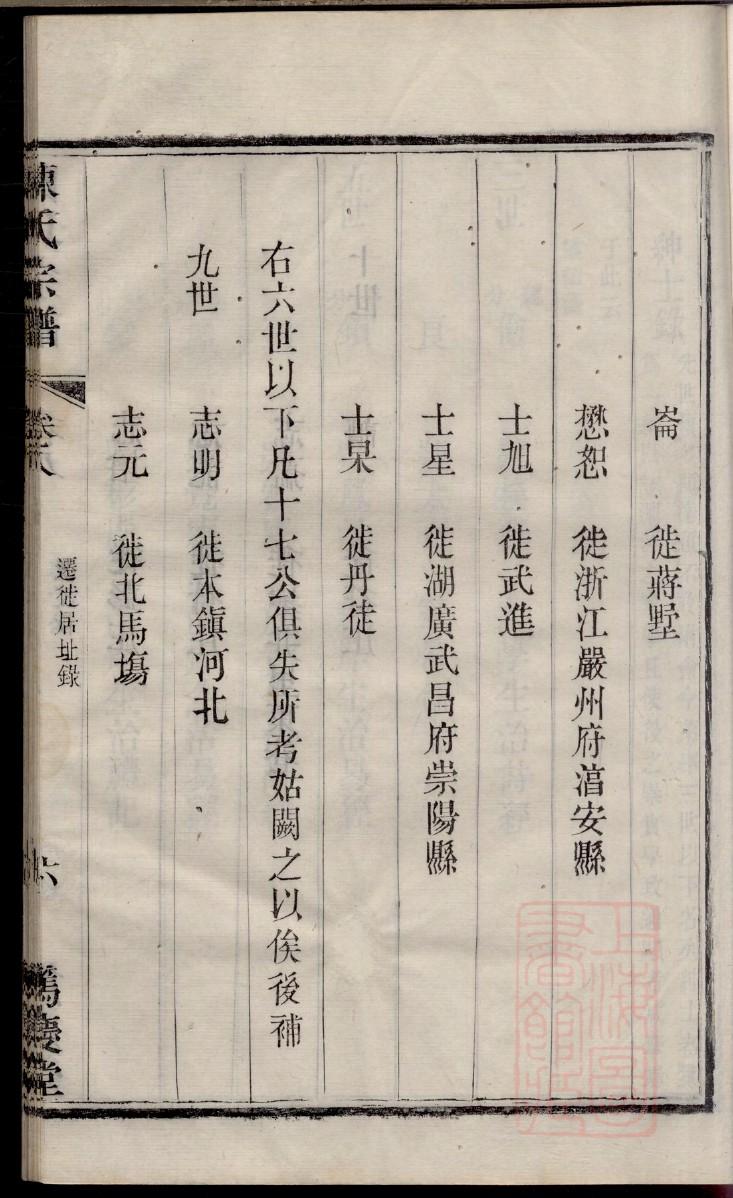 崙 徙蔣墅
懋恕 徙浙江嚴州府湻安縣
士旭 徙武進
士星 徙湖廣武昌府崇陽縣
士杲 徙丹徒
右六世以下凡十七公俱失所考姑闕之以俟後補
九世 志明 徙本鎭河北
志元 徙北馬塲
陳氏宗譜 卷八 遷徙居址錄 六 篤慶堂
上海圖書館藏